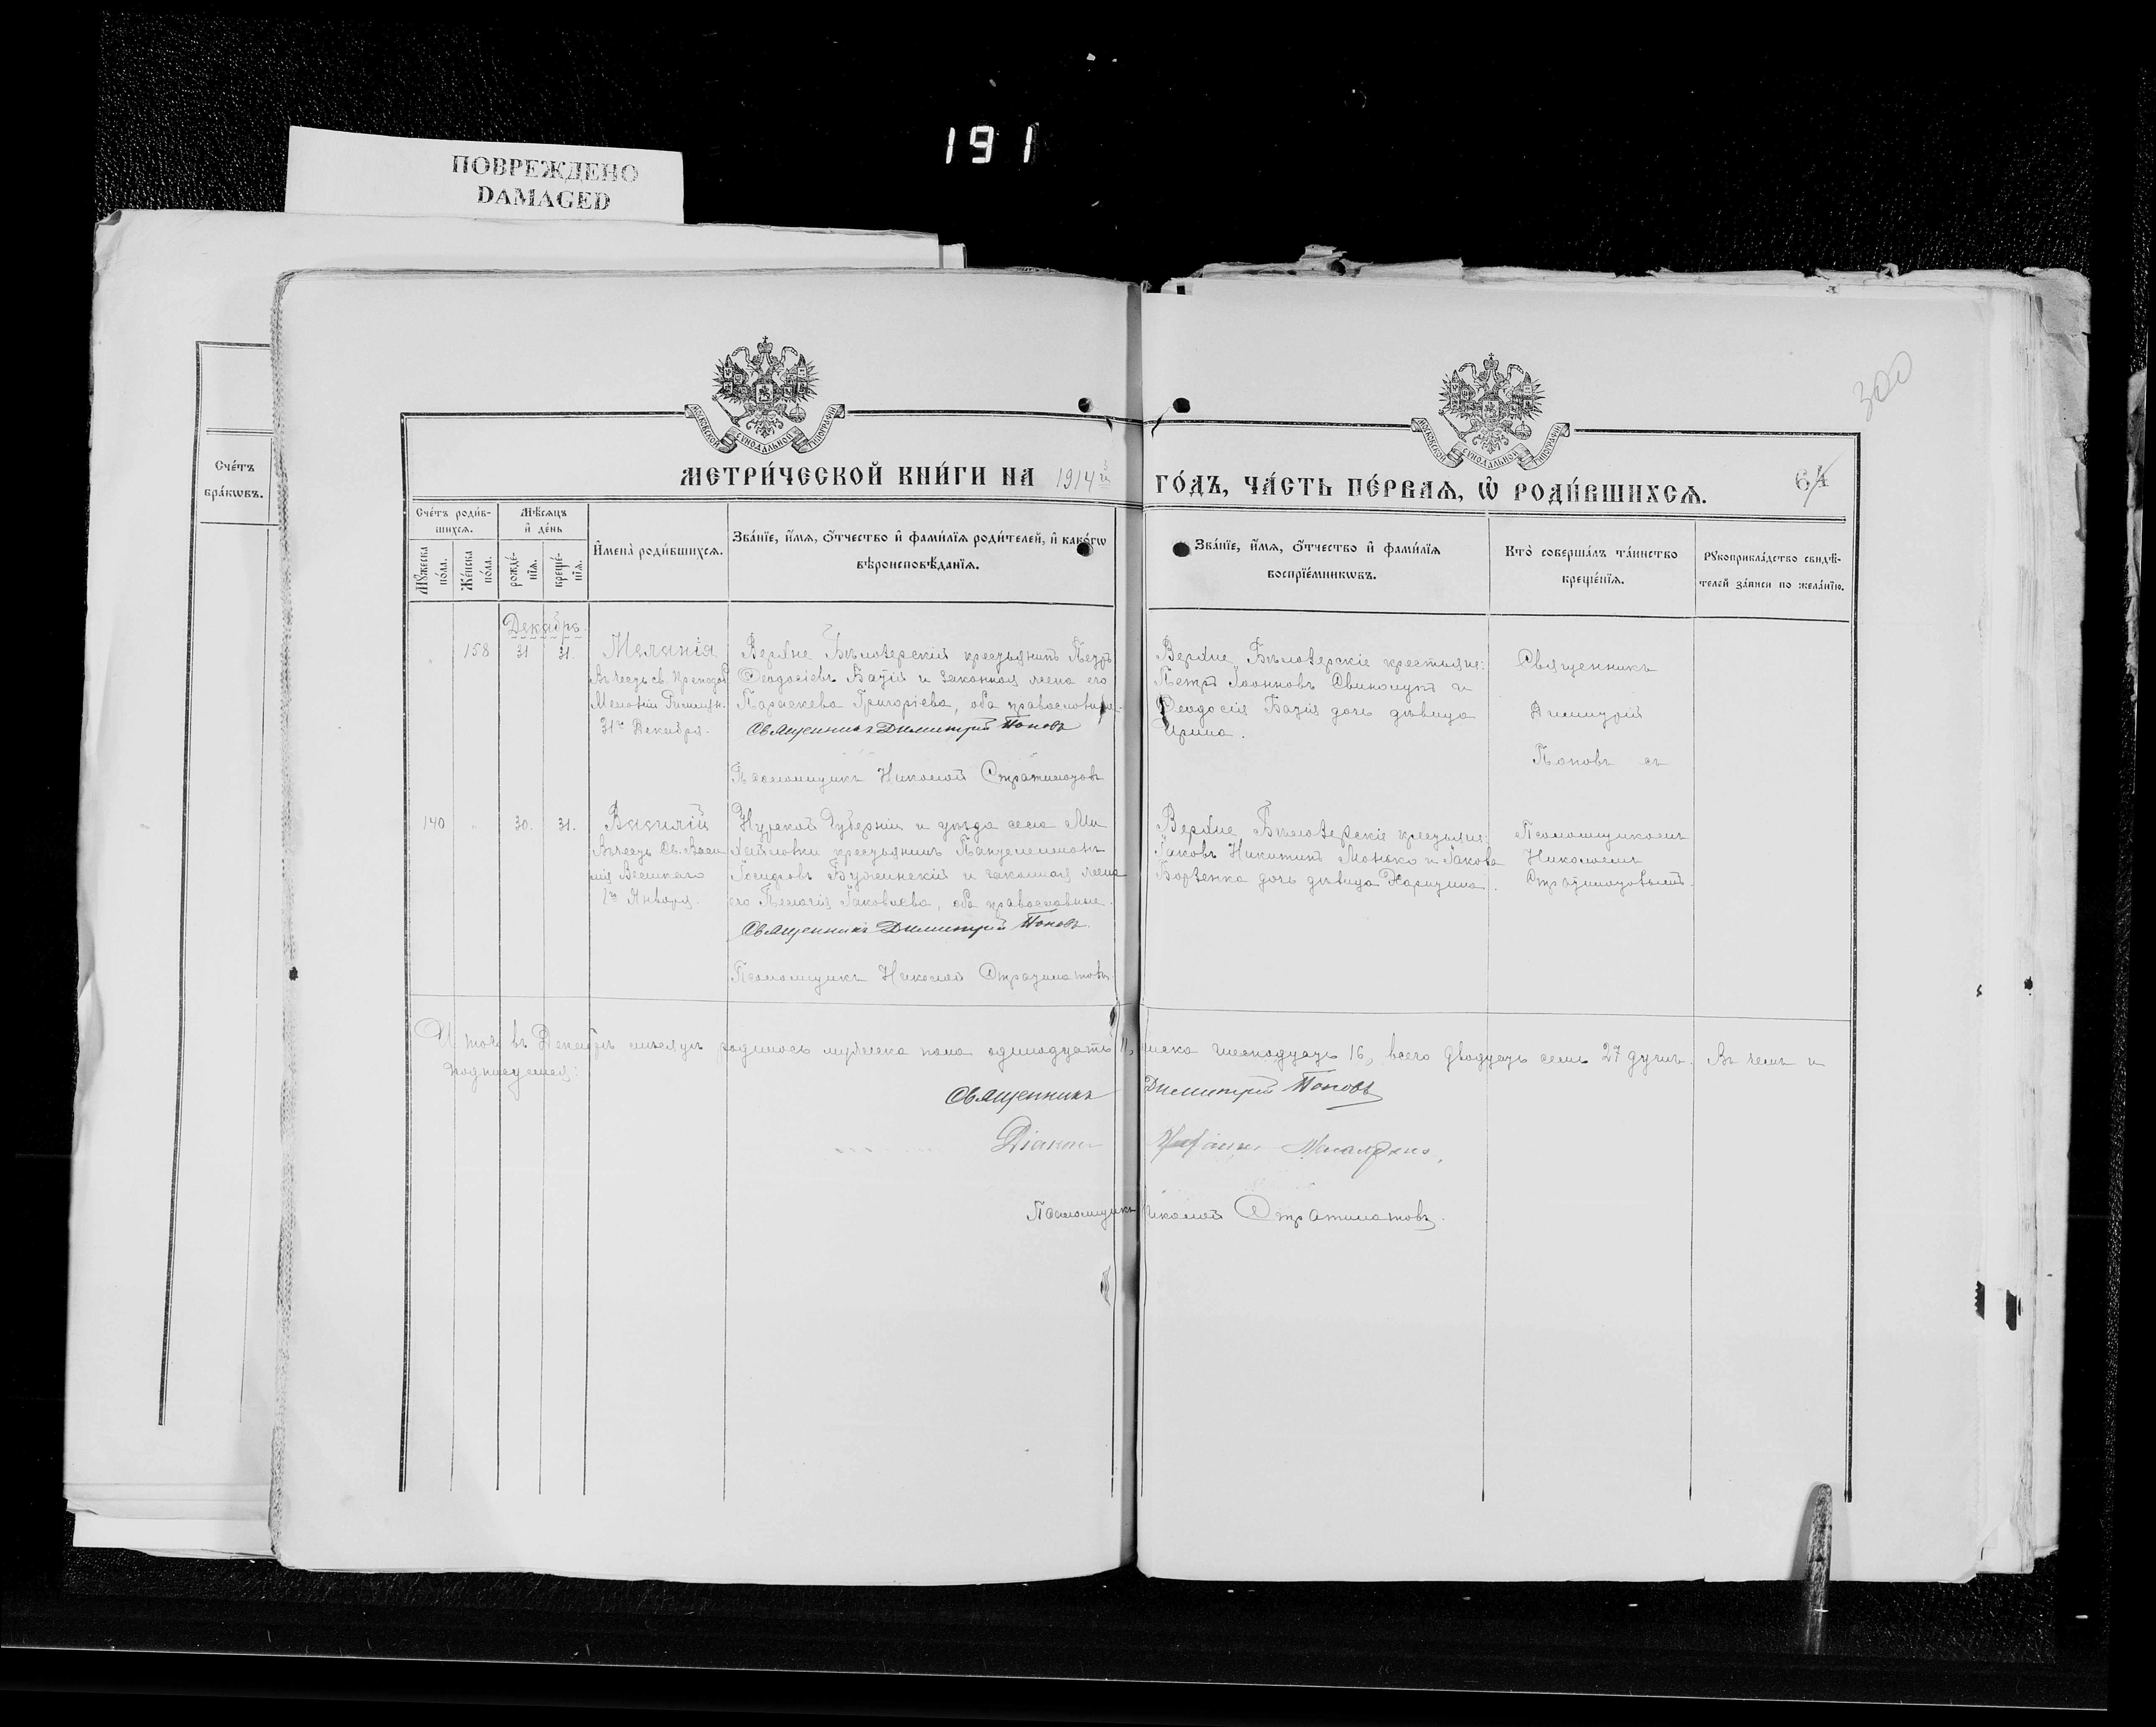 191
ПОВРЕЖДЕНО
DAMAGED
300
Сче́тъ
бра́кѡвъ.
МОСКОВСКОЙ СѴНОДАЛЬНОЙ ТИПОГРАФІИ
МОСКОВСКОЙ СѴНОДАЛЬНОЙ ТИПОГРАФІИ
МЕТРИ́ЧЕСКОЙ КНИ́ГИ НА 1914 ГО́ДЪ, ЧА́СТЬ ПЕ́РВАѦ, Ѡ҆ РОДИ́ВШИХСѦ. 64
Сче́тъ роди́в-
шихсѧ.
Мꙋ́жеска по́ла.
Же́нска по́ла.
Мѣ́сѧцъ
и҆ де́нь
рожде́-
нїѧ.
креще́-
нїѧ.
И҆мена̀ роди́вшихсѧ.
Зва́нїе, и҆́мѧ, ѻ҆́тчество и҆ фами́лїѧ роди́телей, и҆ како́гѡ
вѣроисповѣ́данїѧ.
Зва́нїе, и҆́мѧ, ѻ҆́тчество и҆ фами́лїѧ
воспрїе́мникѡвъ.
Кто̀ соверша́лъ та́инство
креще́нїѧ.
Рꙋкоприкла́дство свидѣ́-
телей за́писи по жела́нїю.
Декабрь.
158 31 31.
Меланія
Въ честь св. Препод.
Меланіи Римлян.
31го Декабря.
Верхне Бѣлозерскій крестьянинъ Петръ
Ѳеодосіевъ Багій и законная жена его
Параскева Григоріева, оба православные.
Священникъ Димитрій Поповъ
Псаломщикъ Николай Стратилатовъ
Верхне Бѣлозерскіе крестьяне:
Петръ Іоанновъ Свинолупъ и
Ѳеодосія Багія дочь дѣвица
Ирина.
Священникъ
Димитрій
Поповъ съ
140 " 30. 31.
Василій
Въ честь Св. Васи
лія Великаго
1го Января.
Курской Губерніи и уѣзда села Ми
хайловки крестьянинъ Пантелеимонъ
Іосифовъ Бужинскій и законная жена
его Пелагія Іаковлева, оба православные.
Священникъ Димитрій Поповъ.
Псаломщикъ Николай Стратилатовъ.
Верхне Бѣлозерскіе крестьяне:
Іаковъ Никитинъ Монько и Іакова
Борзенка дочь дѣвица Харитина.
Псаломщикомъ
Николаемъ
Стратилатовымъ.
Итого въ Декабрѣ мѣсяцѣ родилось мужеска пола одинадцать 11, женска шестнадцать 16, всего двадцать семь 27 душъ. Въ чемъ и
подписуемся:
Священникъ Димитрій Поповъ
Діаконъ
Псаломщикъ Николай Стратилатовъ.